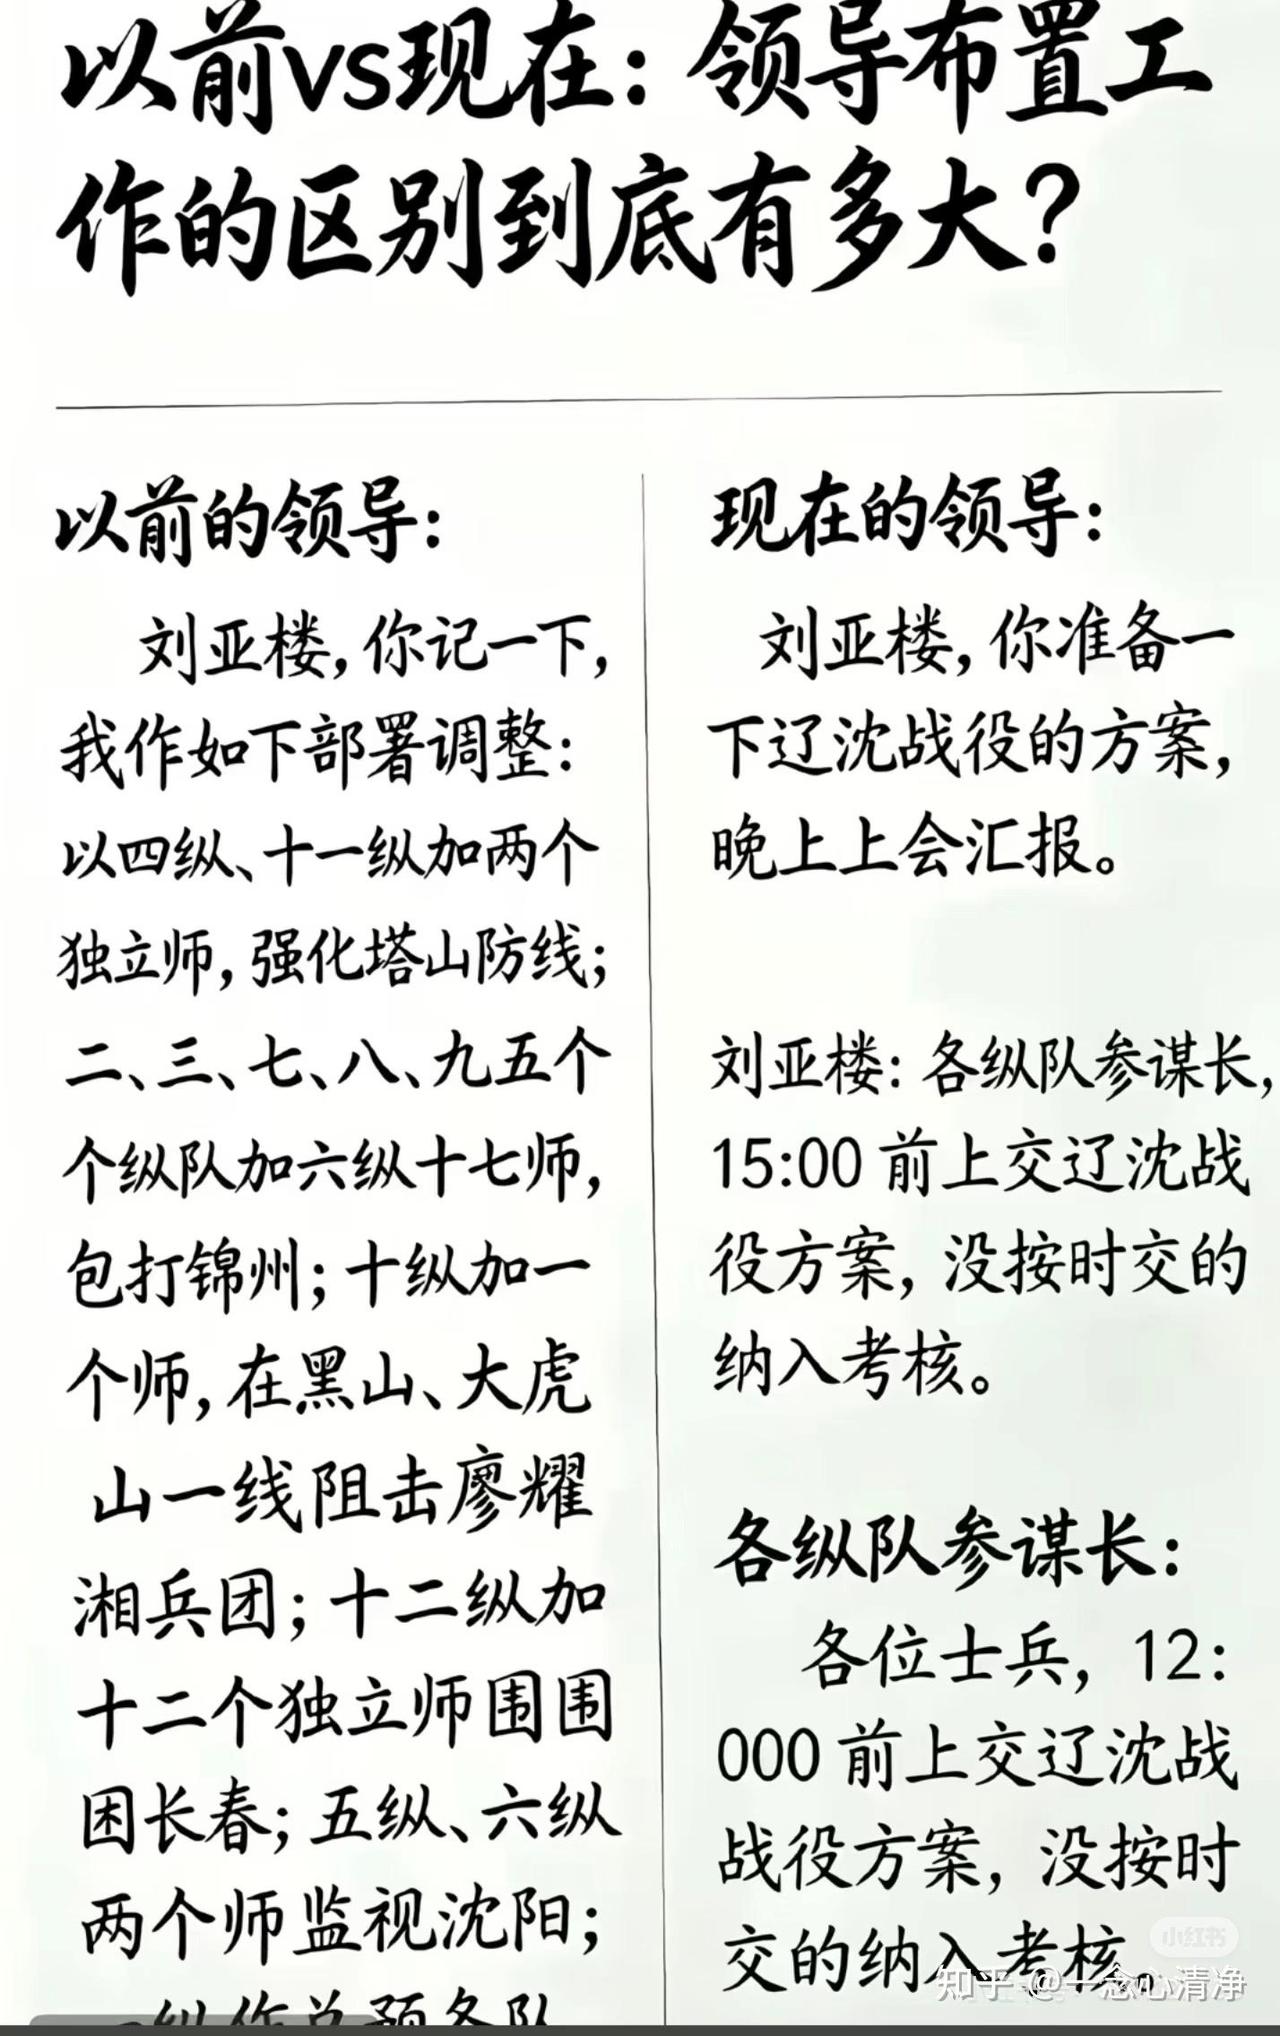 以前vs现在：领导布置工
作的区别到底有多大？
以前的领导：
刘亚楼，你记一下，
我作如下部署调整：
以四纵、十一纵加两个
独立师，强化塔山防线；
二、三、七、八、九五个
个纵队加六纵十七师，
包打锦州；十纵加一
个师，在黑山、大虎
山一线阻击廖耀
湘兵团；十二纵加
十二个独立师围围
困长春；五纵、六纵
两个师监视沈阳；
一纵作总预备队
现在的领导：
刘亚楼，你准备一
下辽沈战役的方案，
晚上上会汇报。
刘亚楼：各纵队参谋长，
15:00 前上交辽沈战
役方案，没按时交的
纳入考核。
各纵队参谋长：
各位士兵，12：
000 前上交辽沈战
战役方案，没按时
交的纳入考核。
小红书
知乎 @一念心清净